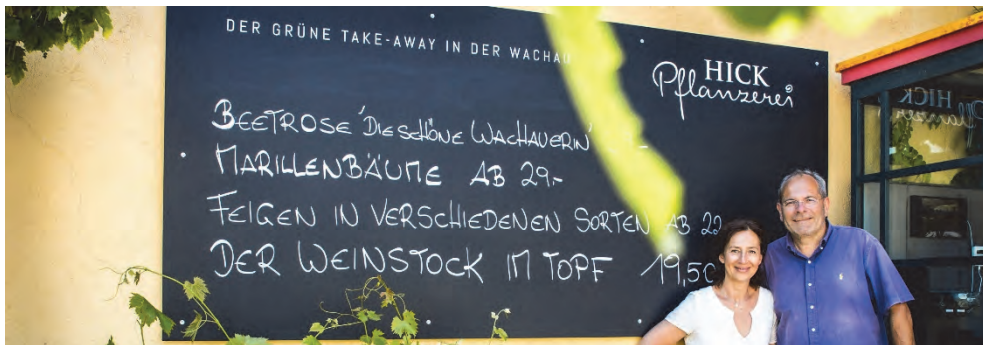 DER GRÜNE TAKE-AWAY IN DER WACHAU
HICK
Pflanzerei
BEETROSE 'DIE SCHÖNE WACHAUERIN'
MARILLENBÄUME AB 29.-
FEIGEN IN VERSCHIEDENEN SORTEN AB
DER WEINSTOCK IM TOPF 19,50
HICK